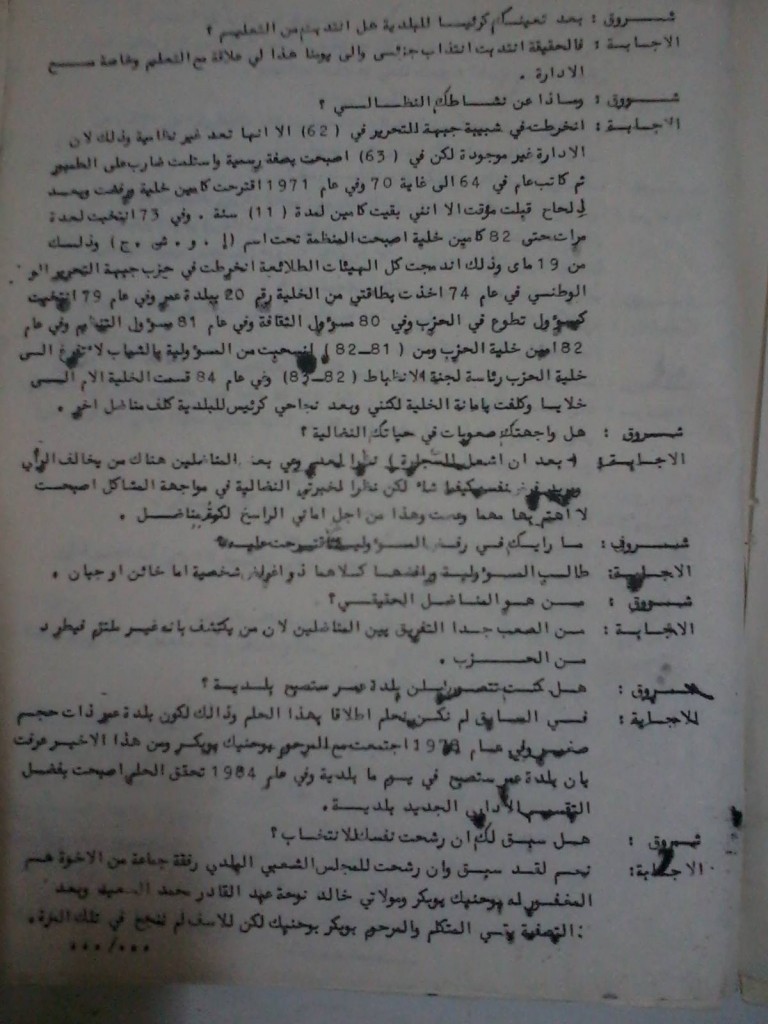 شروق : بعد تعيينكم كرئيسا للبلدية هل انتدبتم من التعليم ؟
الاجابة : فالحقيقة انتدبت انتداب جزئي والى يومنا هذا لي علاقة مع التعليم وخاصة مع
الادارة .
شروق : وماذا عن نشاطك النظالي ؟
الاجابة : انخرطت في شبيبة جبهة التحرير في (62) الا انها تعد غير نظامية وذلك لان
الادارة غير موجودة لكن في (63) اصبحت بصفة رسمية واستلمت ضارب على الطمبور
ثم كاتب عام في 64 الى غاية 70 وفي عام 1971 اقترحت كامين خلية برفضت وبعد
الحاح قبلت مؤقت الا انني بقيت كامين لمدة (11) سنة . وفي 73 انتخبت لعدة
مرات حتى 82 كامين خلية اصبحت المنظمة تحت اسم (إ . و . ش . ج) وذلك
من 19 ماي وذلك اندمجت كل الهيئات الطلائعية انخرطت في حزب جبهة التحرير
الوطنسي في عام 74 اخذت بطاقتي من الخلية رقم 20 ببلدة عمر وفي عام 79 انتخبت
كمسؤول تطوع في الحزب وفي 80 مسؤول الثقافة وفي عام 81 مسؤول التنظيم وفي عام
82 امين خلية الحزب ومن (81-82) انسحبت من المسؤولية بالشباب لاتفرغ الى
خلية الحزب رئاسة لجنة الانظباط (82-83) وفي عام 84 قسمت الخلية الام الى
خلايا وكلفت بامانة الخلية لكنني وبعد نجاحي كرئيس للبلدية كلف مناضل اخر .
شروق : هل واجهتك صعوبات في حياتك النضالية ؟
الاجابة : بعد ان اشعل نظرا بعد المناضلين هناك من يخالف الرأي
شاء لكن نظرا لخبرتي النضالية في مواجهة المشاكل اصبحت
لا اهتم بها مهما وهذا من اجل اماني الراسخ لكوني مناضل .
شروق : ما رايك في رفض المسؤولية
الاجابة : طالب المسؤولية ورافضها كلاهما ذو اغراض شخصية اما خائن او جبان .
شروق : من هو المناضل الحقيقي ؟
الاجابة : من الصعب جدا التفريق بين المناضلين لان من يكتشف بانه غير ملتزم فيطرد
من الحزب .
شروق : هل كنت تتصور بان بلدة عمر ستصبح بلدية ؟
الاجابة : في السابق لم نكن نحلم اطلاقا بهذا الحلم وذالك لكون بلدة عمر ذات حجم
صغير وفي عام اجتمعت مع المرحوم بوحنيك بوبكر ومن هذا الاخير عرفت
بان بلدة عمر ستصبح في يوم ما بلدية وفي عام 1984 تحقق الحلم اصبحت بفضل
التقسيم الاداري الجديد بلدية .
شروق : هل سبق لك ان رشحت نفسك للانتخاب ؟
الاجابة : نعم لقد سبق وان رشحت للمجلس الشعبي البلدي رفقة جماعة من الاخوة هم
المغفور له بوحنيك بوبكر ومولاتي خالد نوحة عبد القادر محمد السعيد وبعد
التصفية بقي المتكلم والمرحوم بوبكر بوحنيك لكن للاسف لم ننجح في تلك المرة .
.../...